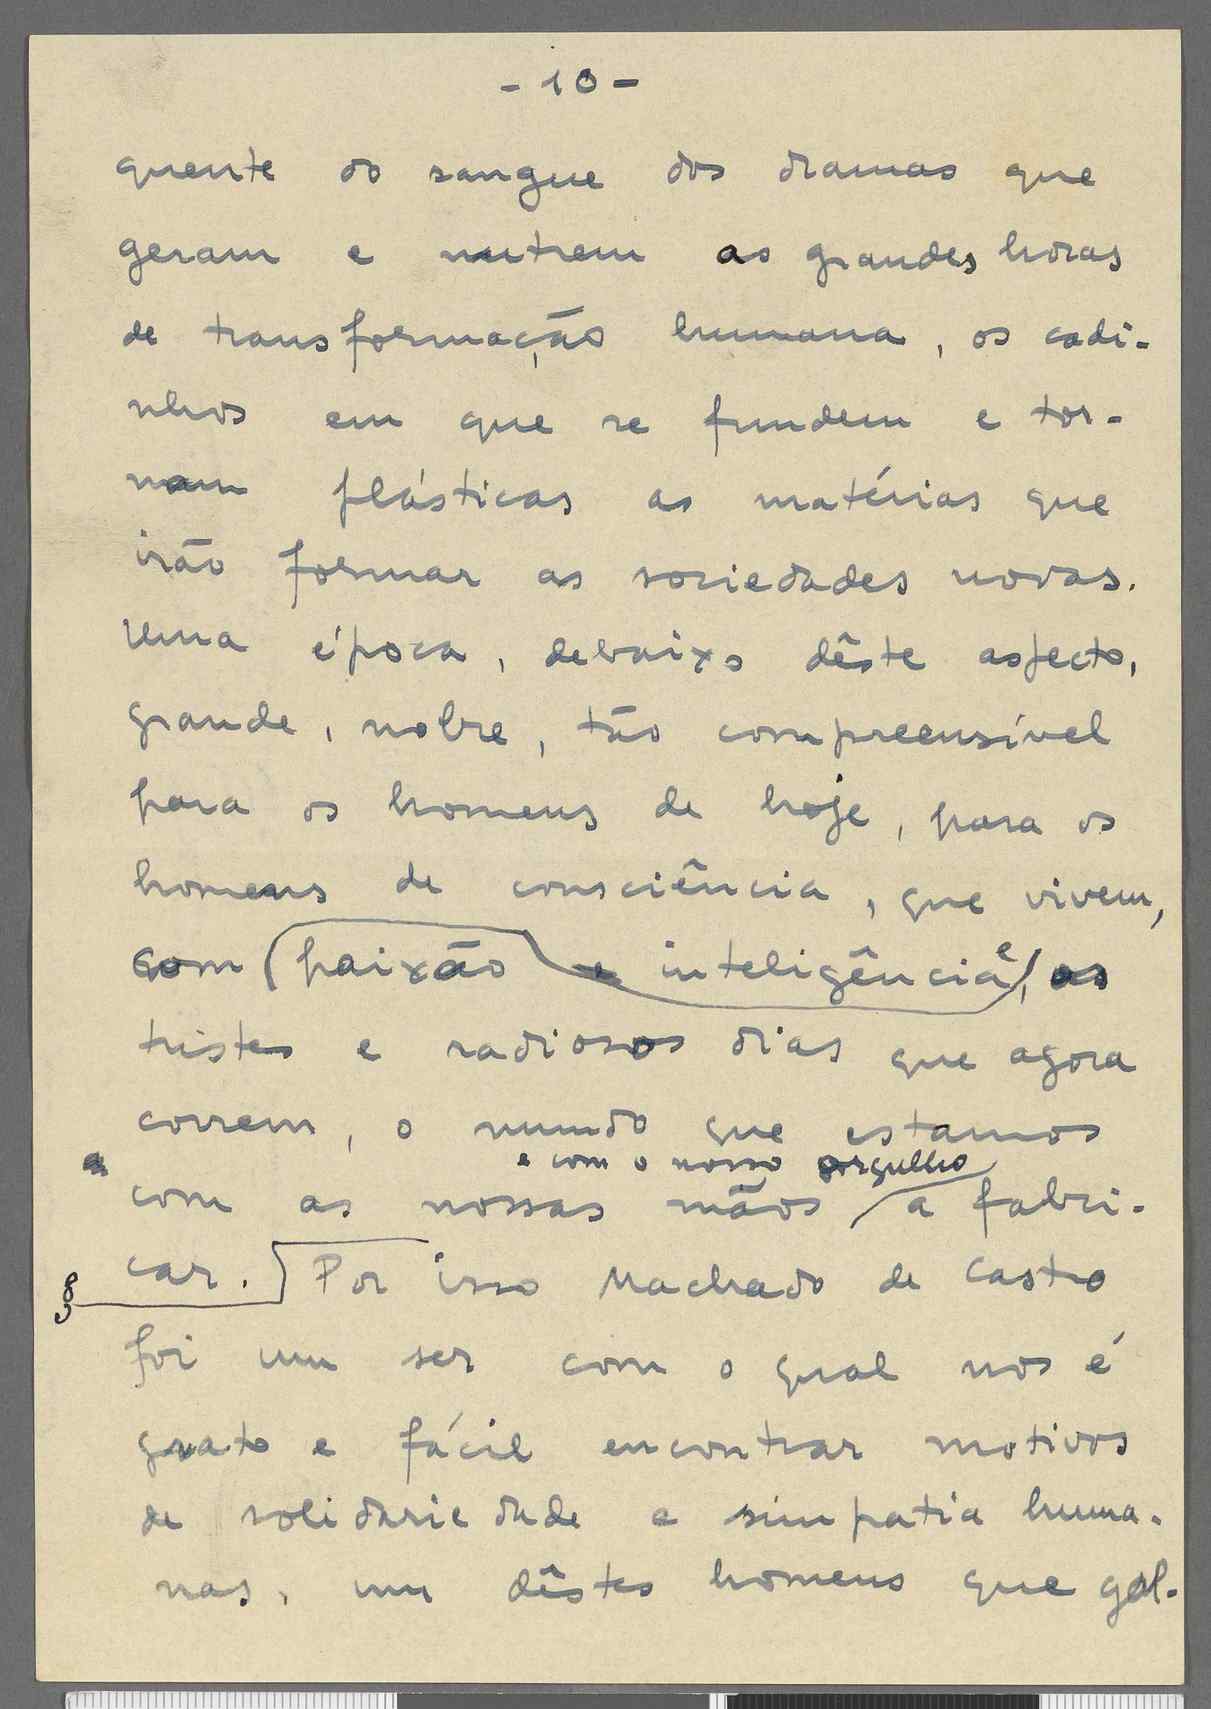 - 10 -
quente do sangue dos dramas que
geram e nutrem as grandes horas
de transformação humana, os cadi-
nhos em que se fundem e tor-
nam plásticas as matérias que
irão formar as sociedades novas.
Uma época, debaixo dêste aspecto,
grande, nobre, tão compreensível
para os homens de hoje, para os
homens de consciência, que vivem,
com paixão e inteligência e, os
tristes e radiosos dias que agora
correm, o mundo que estamos
a e com o nosso orgulho
com as nossas mãos a fabri-
car. Por isso Machado de Castro
foi um ser com o qual nos é
grato e fácil encontrar motivos
de solidariedade e simpatia huma-
nas, um dêstes homens que gal-